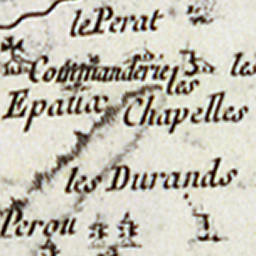 le Perat
Commanderie les
les
Epaux Chapelles
les Durands
Perou